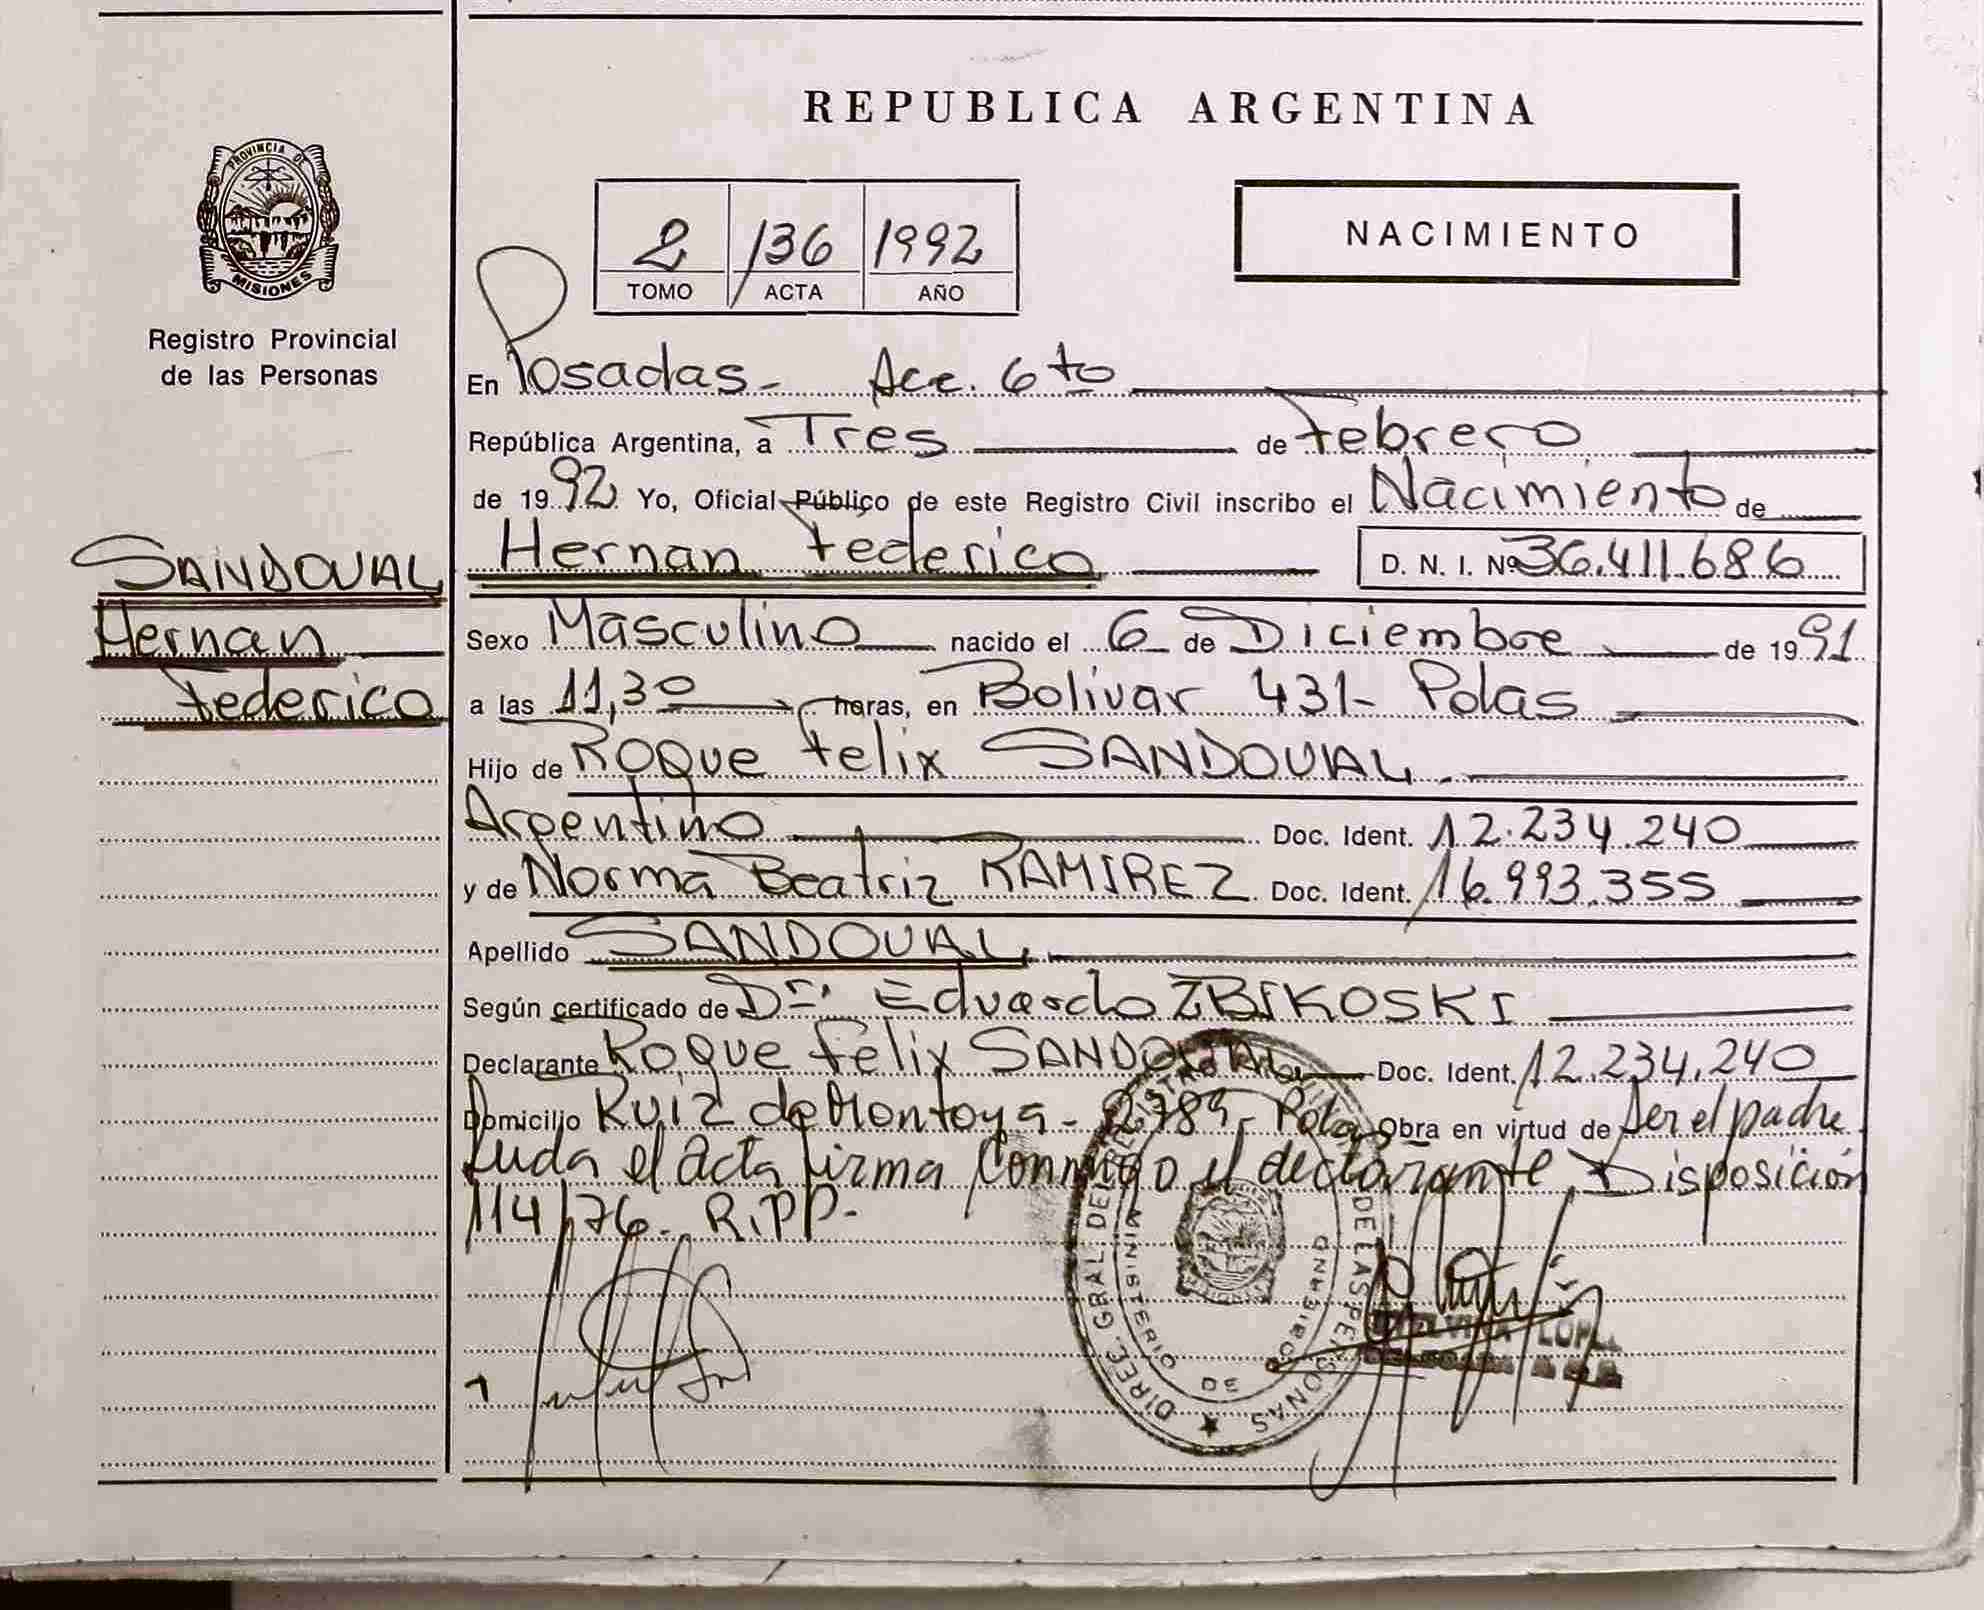 REPUBLICA ARGENTINA
PROVINCIA DE
MISIONES
Registro Provincial
de las Personas
2 136 1992
TOMO ACTA AÑO
NACIMIENTO
En Posadas - Acc. 6to
República Argentina, a Tres de Febrero
de 1992 Yo, Oficial Público de este Registro Civil inscribo el Nacimiento de
SANDOVAL
Hernan
Federico
Hernan Federico D. N. I. Nº 36.411.686
Sexo Masculino nacido el 6 de Diciembre de 1991
a las 11,30 horas, en Bolivar 431- Pdas
Hijo de Roque Felix SANDOVAL.
Argentino Doc. Ident. 12.234.240
y de Norma Beatriz RAMIREZ Doc. Ident. 16.993.355
Apellido SANDOVAL
Según certificado de Dr. Eduardo ZBIKOSKI
Declarante Roque Felix SANDOVAL Doc. Ident. 12.234.240
Domicilio Ruiz de Montoya - 2789 - Pdas Obra en virtud de Ser el padre
Leida el acta firma conmigo el declarante Disposición
114/76. R.P.P.
DIREC. GRAL. DEL REGISTRO DE LAS PERSONAS
MINISTERIO DE GOBIERNO
LOPEZ